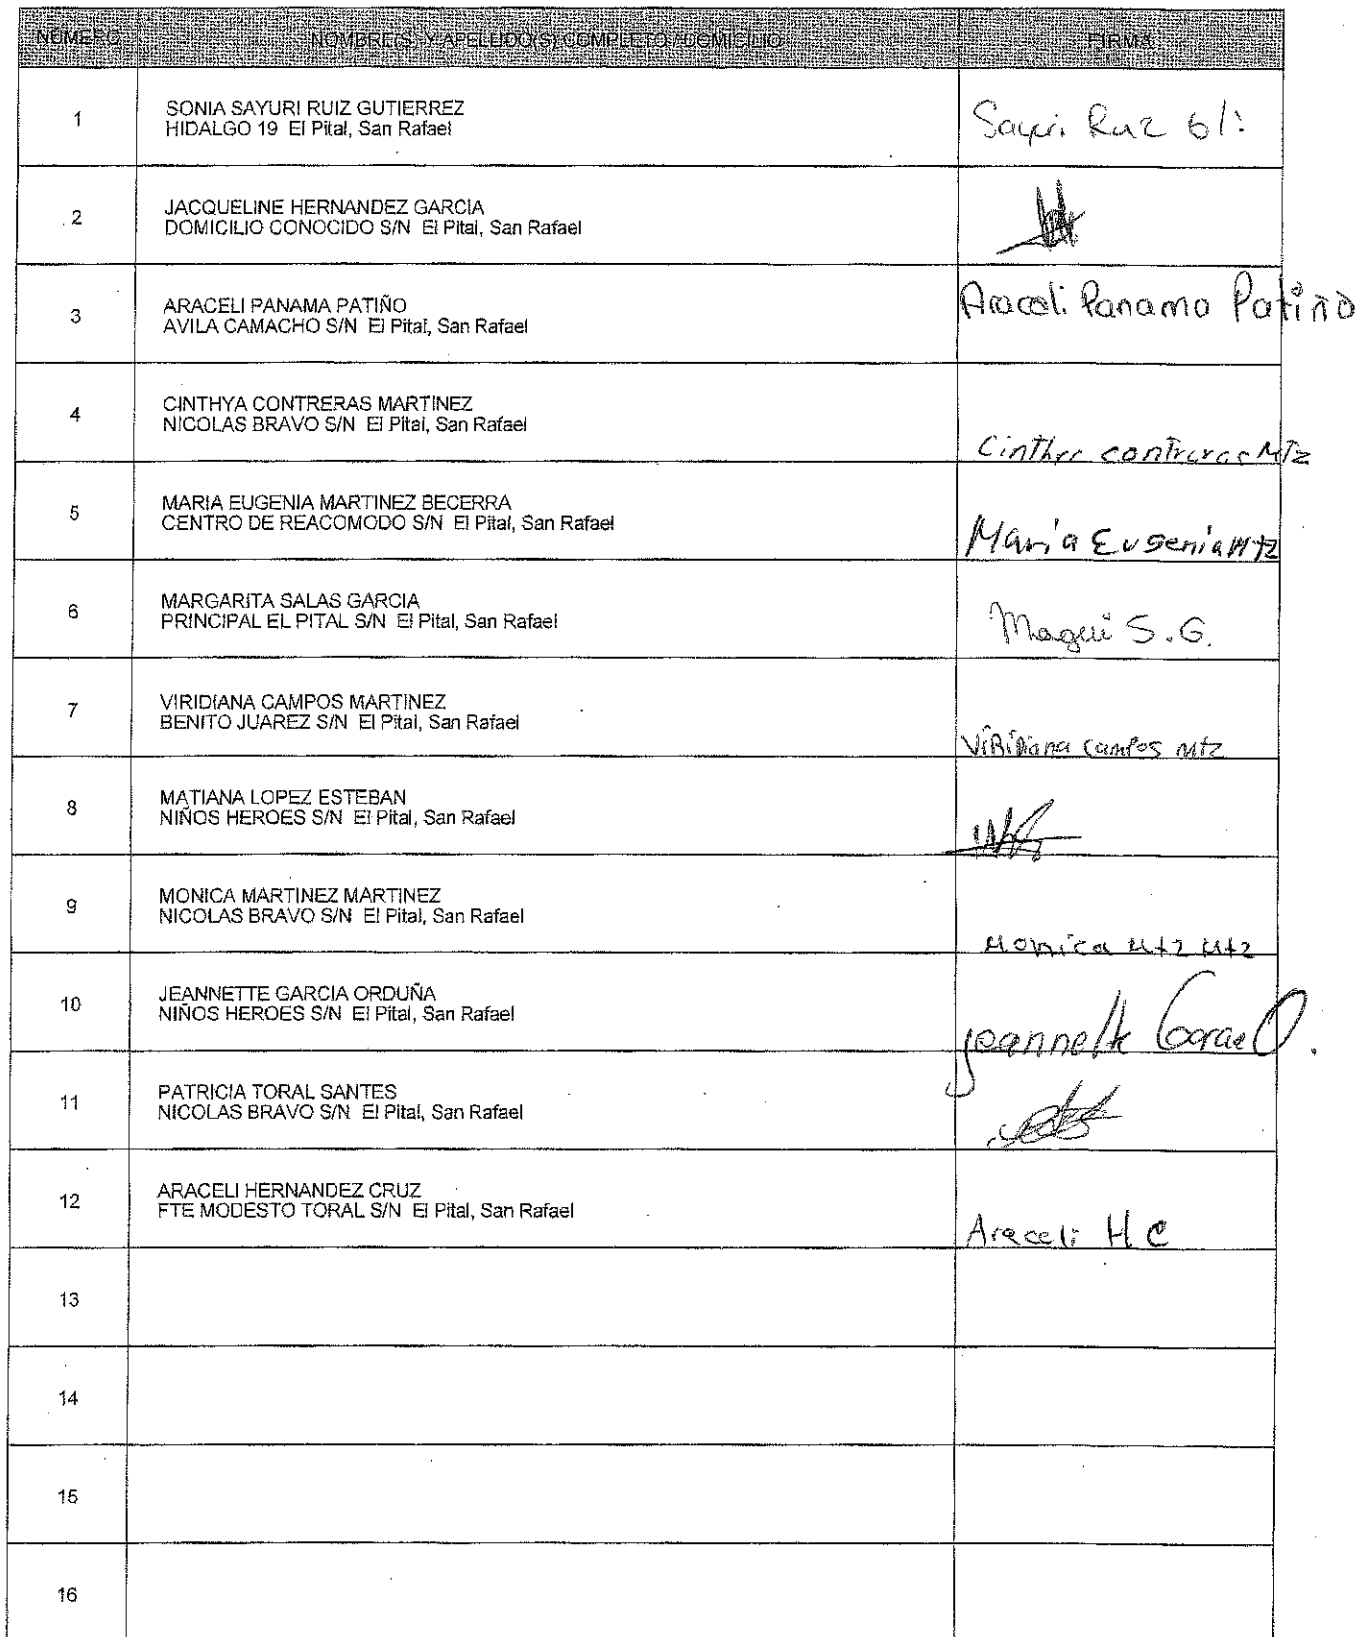 NÚMERO NOMBRE(S) Y APELLIDO(S) COMPLETO / DOMICILIO FIRMA
1 SONIA SAYURI RUIZ GUTIERREZ
HIDALGO 19 El Pital, San Rafael
Sayuri Ruiz
2 JACQUELINE HERNANDEZ GARCIA
DOMICILIO CONOCIDO S/N El Pital, San Rafael
3 ARACELI PANAMA PATIÑO
AVILA CAMACHO S/N El Pital, San Rafael
Araceli Panama Patiño
4 CINTHYA CONTRERAS MARTINEZ
NICOLAS BRAVO S/N El Pital, San Rafael
contreras Mtz
5 MARIA EUGENIA MARTINEZ BECERRA
CENTRO DE REACOMODO S/N El Pital, San Rafael
Maria Eugenia Mtz
6 MARGARITA SALAS GARCIA
PRINCIPAL EL PITAL S/N El Pital, San Rafael
Magui S.G.
7 VIRIDIANA CAMPOS MARTINEZ
BENITO JUAREZ S/N El Pital, San Rafael
ViRiDiana Campos Mtz
8 MATIANA LOPEZ ESTEBAN
NIÑOS HEROES S/N El Pital, San Rafael
9 MONICA MARTINEZ MARTINEZ
NICOLAS BRAVO S/N El Pital, San Rafael
Monica Mtz Mtz
10 JEANNETTE GARCIA ORDUÑA
NIÑOS HEROES S/N El Pital, San Rafael
Jeannette Garcia O.
11 PATRICIA TORAL SANTES
NICOLAS BRAVO S/N El Pital, San Rafael
12 ARACELI HERNANDEZ CRUZ
FTE MODESTO TORAL S/N El Pital, San Rafael
Araceli H C
13
14
15
16